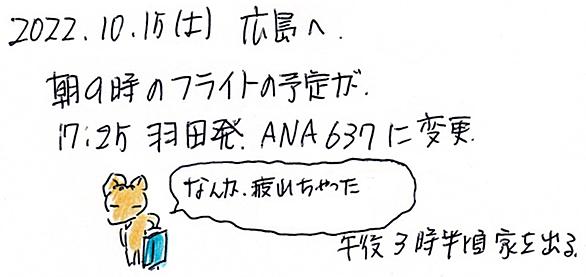 2022.10.15(土) 広島へ.
朝9時のフライトの予定が.
17:25 羽田発. ANA637に変更.
なんか、疲れちゃった
午後3時半頃家を出る.